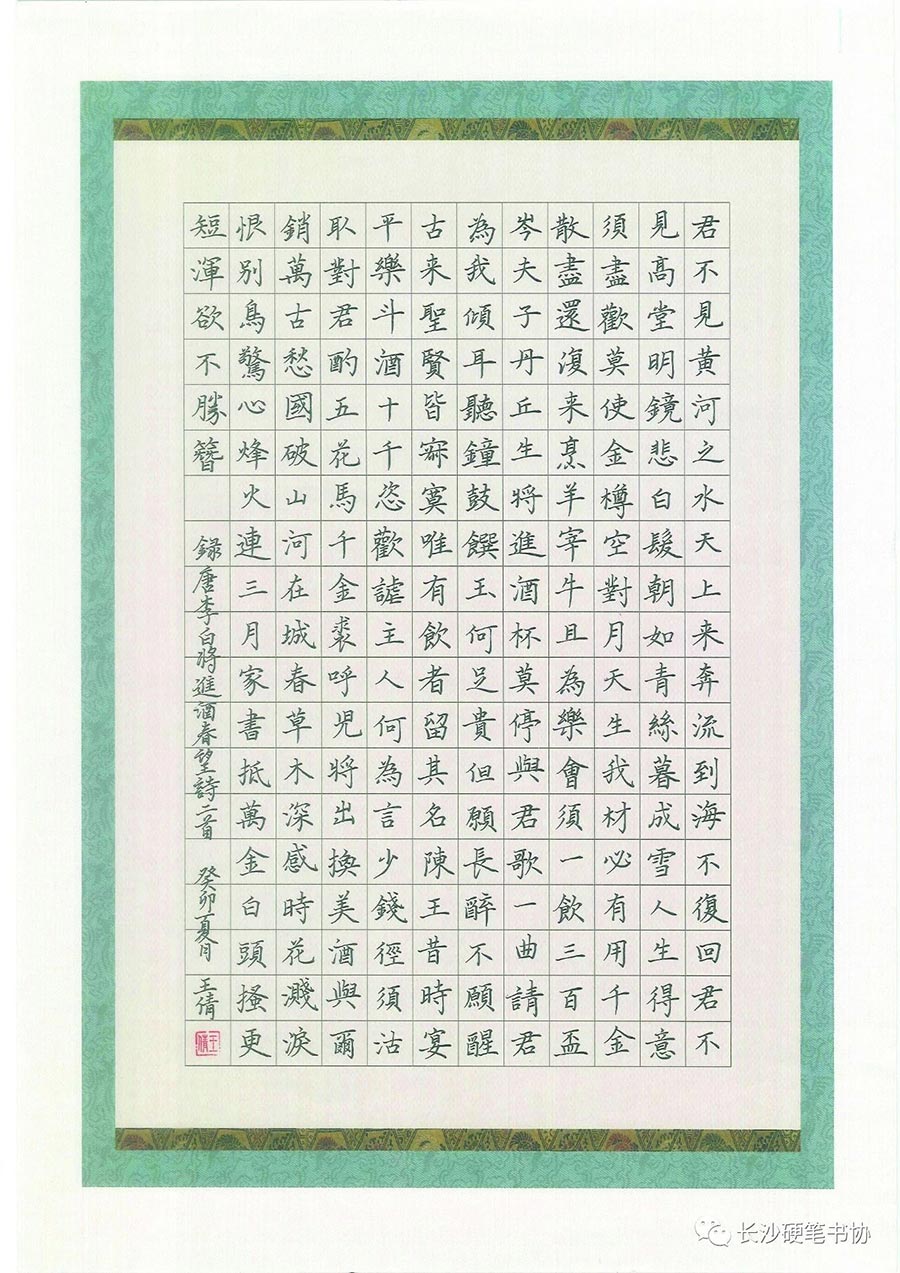 君不見黃河之水天上来奔流到海不復回君不
見高堂明鏡悲白髮朝如青絲暮成雪人生得意
須盡歡莫使金樽空對月天生我材必有用千金
散盡還復来烹羊宰牛且為樂會須一飲三百盃
岑夫子丹丘生將進酒杯莫停與君歌一曲請君
為我傾耳聽鐘鼓饌玉何足貴但願長醉不願醒
古来聖賢皆寂寞唯有飲者留其名陳王昔時宴
平樂斗酒十千恣歡謔主人何為言少錢徑須沽
取對君酌五花馬千金裘呼兒將出換美酒與爾
銷萬古愁國破山河在城春草木深感時花濺淚
恨別鳥驚心烽火連三月家書抵萬金白頭搔更
短渾欲不勝簪
録唐李白將進酒春望詩二首 癸卯夏月 王倩
王倩
长沙硬笔书协